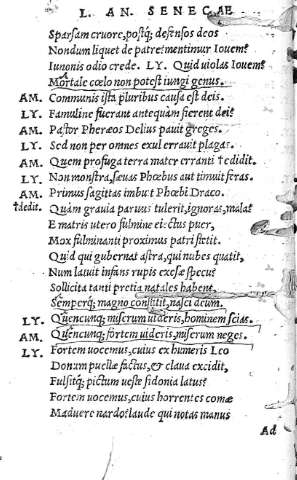 L. AN. SENECÆ
Sparsam cruore, postq; defensos deos
Nondum liquet de patre mentimur Iouem?
Iunonis odio crede. LY. Quid uiolas Iouem?
Mortale cœlo non potest iungi genus.
AM. Communis ista pluribus causa est deis.
LY. Famuline fuerant antequam fierent dei?
AM. Pastor Pheræos Delius pauit greges.
LY. Sed non per omnes exul errauit plagas.
AM. Quem profuga terra mater erranti †edidit.
LY. Non monstra, sæuas Phœbus aut timuit feras.
AM. Primus sagittas imbuit Phœbi Draco.
†dedit. Quàm grauia paruus tulerit, ignoras, mala?
E matris utero fulmine eiectus puer,
Mox fulminanti proximus patri stetit.
Quid qui gubernat astra, qui nubes quatit,
Num latuit infans rupis excesæ specu?
Sollicita tanti pretia natales habent,
Semperq; magno constitit, nasci deum.
LY. Quencunq; miserum uideris, hominem scias.
AM. Quencunq; fortem uideris, miserum neges.
LY. Fortem uocemus, cuius ex humeris Leo
Donum puellæ factus, & claua excidit,
Fulsitq; pictum ueste sidonia latus?
Fortem uocemus, cuius horrentes comæ
Maduere nardo? laude qui notas manus
Ad